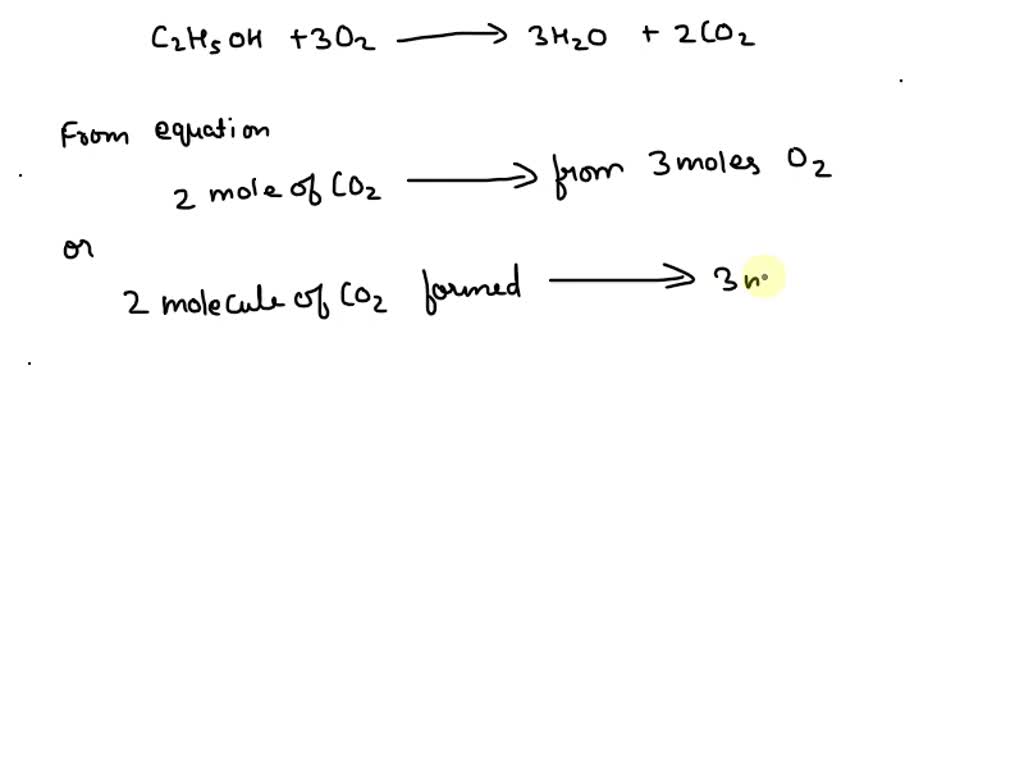 C₂H₅OH +3O₂ ⟶ 3H₂O + 2CO₂
From equation
2 mole of CO₂ ⟶ from 3 moles O₂
or
2 molecule of CO₂ formed ⟶ 3